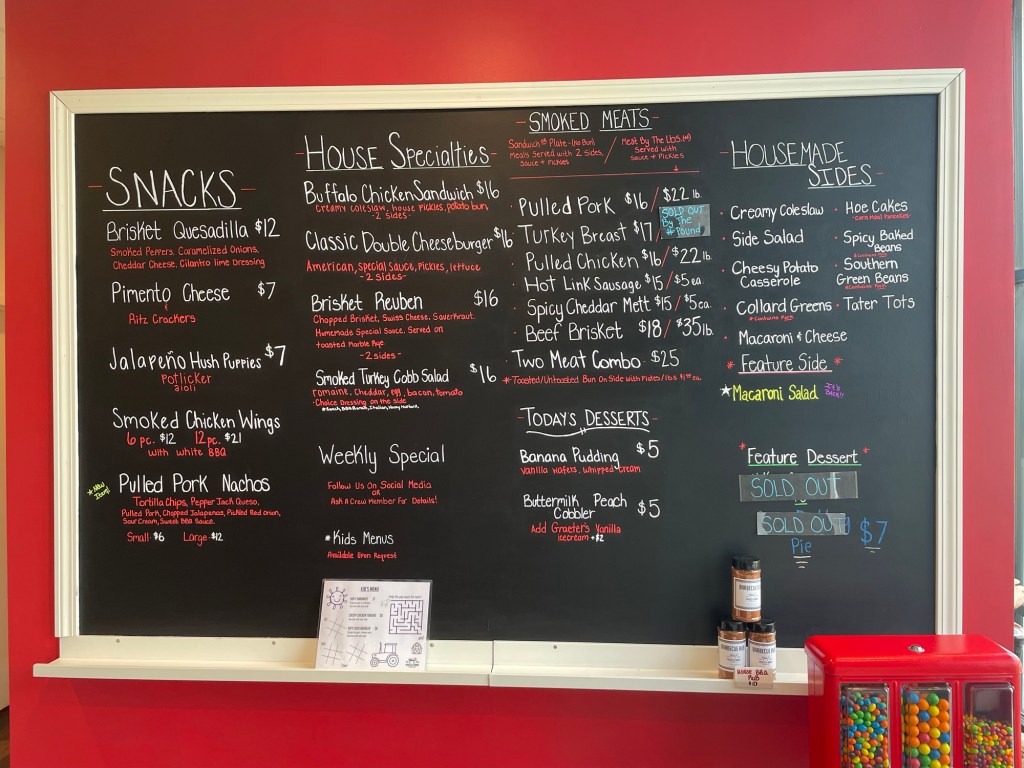 SNACKS
Brisket Quesadilla $12
Smoked Peppers, Caramelized Onions,
Cheddar Cheese, Cilantro Lime Dressing
Pimento Cheese $7
&
Ritz Crackers
Jalapeño Hush Puppies $7
Potlicker
aioli
Smoked Chicken Wings
6 pc. $12 12 pc. $21
with white BBQ
*New Item!
Pulled Pork Nachos
Tortilla Chips, Pepper Jack Queso,
Pulled Pork, Chopped Jalapenos, Pickled Red onion,
Sour Cream, Sweet BBQ Sauce.
Small-$6 Large-$12
-HOUSE Specialties-
Buffalo Chicken Sandwich $16
Creamy coleslaw, house pickles, potato bun,
-2 sides-
Classic Double Cheeseburger $16
American, special sauce, pickles, lettuce
-2 sides-
Brisket Reuben $16
Chopped Brisket, Swiss Cheese, Sauerkraut.
Homemade Special Sauce. Served on
toasted Marble Rye
-2 sides-
Smoked Turkey Cobb Salad $16
romaine, cheddar, egg, bacon, tomato
-Choice Dressing on the side
Weekly Special
Follow Us On Social Media
OR
Ask A Crew Member For Details!
*Kids Menus
Available Upon Request
-SMOKED MEATS-
Sandwich or Plate-(No Bun)
Meals Served with 2 Sides,
Sauce + Pickles
Meat By The Lbs.
Served with
Sauce + Pickles
· Pulled Pork $16 / $22 lb.
· Turkey Breast $17 /
SOLD OUT
By The
# Pound
· Pulled Chicken $16 / $22 lb.
· Hot Link Sausage $15 / $5 ea.
· Spicy Cheddar Mett $15 / $5 ea.
· Beef Brisket $18 / $35 lb.
Two Meat Combo $25
*Toasted/Untoasted Bun On Side with Plates/lbs
-TODAY'S DESSERTS-
Banana Pudding $5
Vanilla Wafers, Whipped Cream
Buttermilk Peach
Cobbler $5
Add Graeter's Vanilla
icecream +$2
-HOUSEMADE
SIDES-
· Creamy Coleslaw
· Side Salad
· Cheesy Potato
Casserole
· Collard Greens
*Contains Pork
· Macaroni & Cheese
· Hoe Cakes
-Corn Meal Pancakes-
· Spicy Baked
Beans
*Contains Pork
· Southern
Green Beans
*Contains Pork
· Tater Tots
* Feature Side *
Macaroni Salad
It's
Back!!
*Feature Dessert*
SOLD OUT
SOLD OUT
Pie
$7
KID'S MENU
HOUSE BBQ
RUB
$10